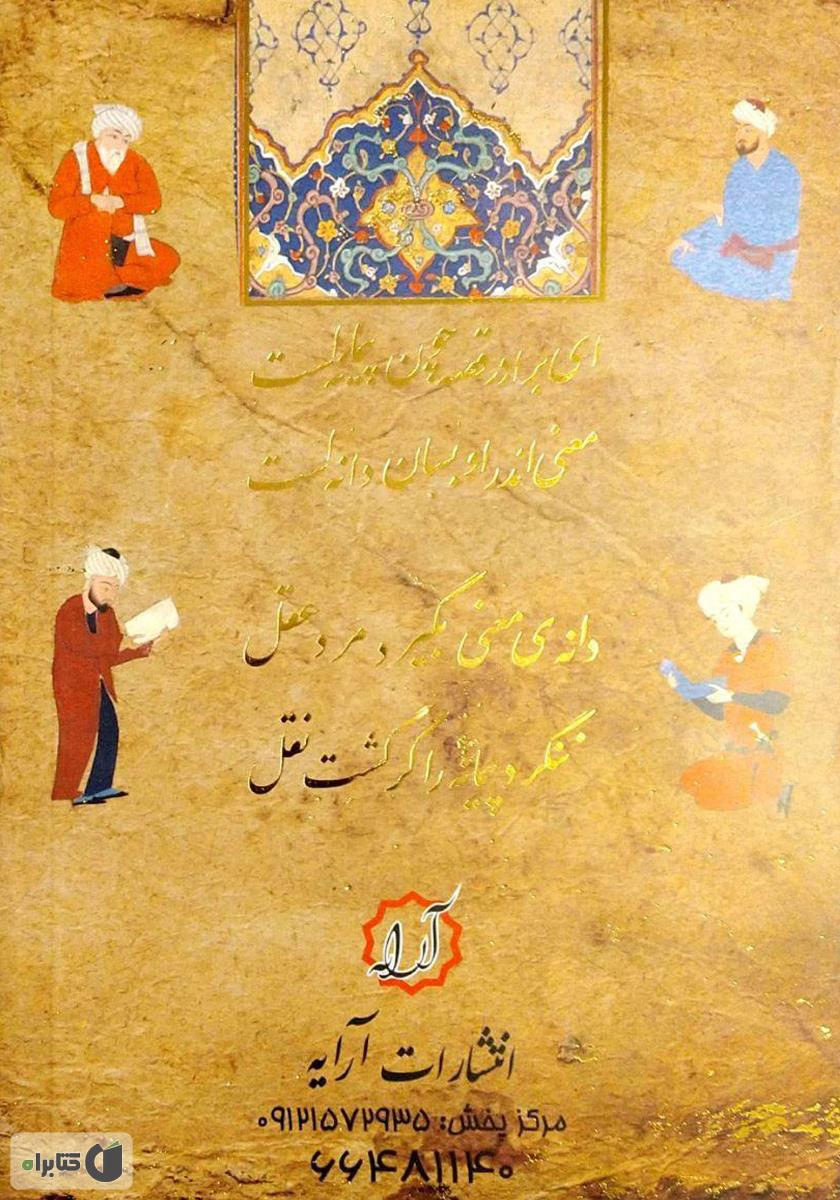 ای برادر قصه چون پیمانه است
معنی اندر او بسان دانه است
دانه‌ی معنی بگیرد مرد عقل
ننگرد پیمانه را گر گشت نقل
آرایه
انتشارات آرایه
مرکز پخش: ۰۹۱۲۱۵۷۲۹۳۵
۶۶۴۸۱۱۴۰
کتابراه